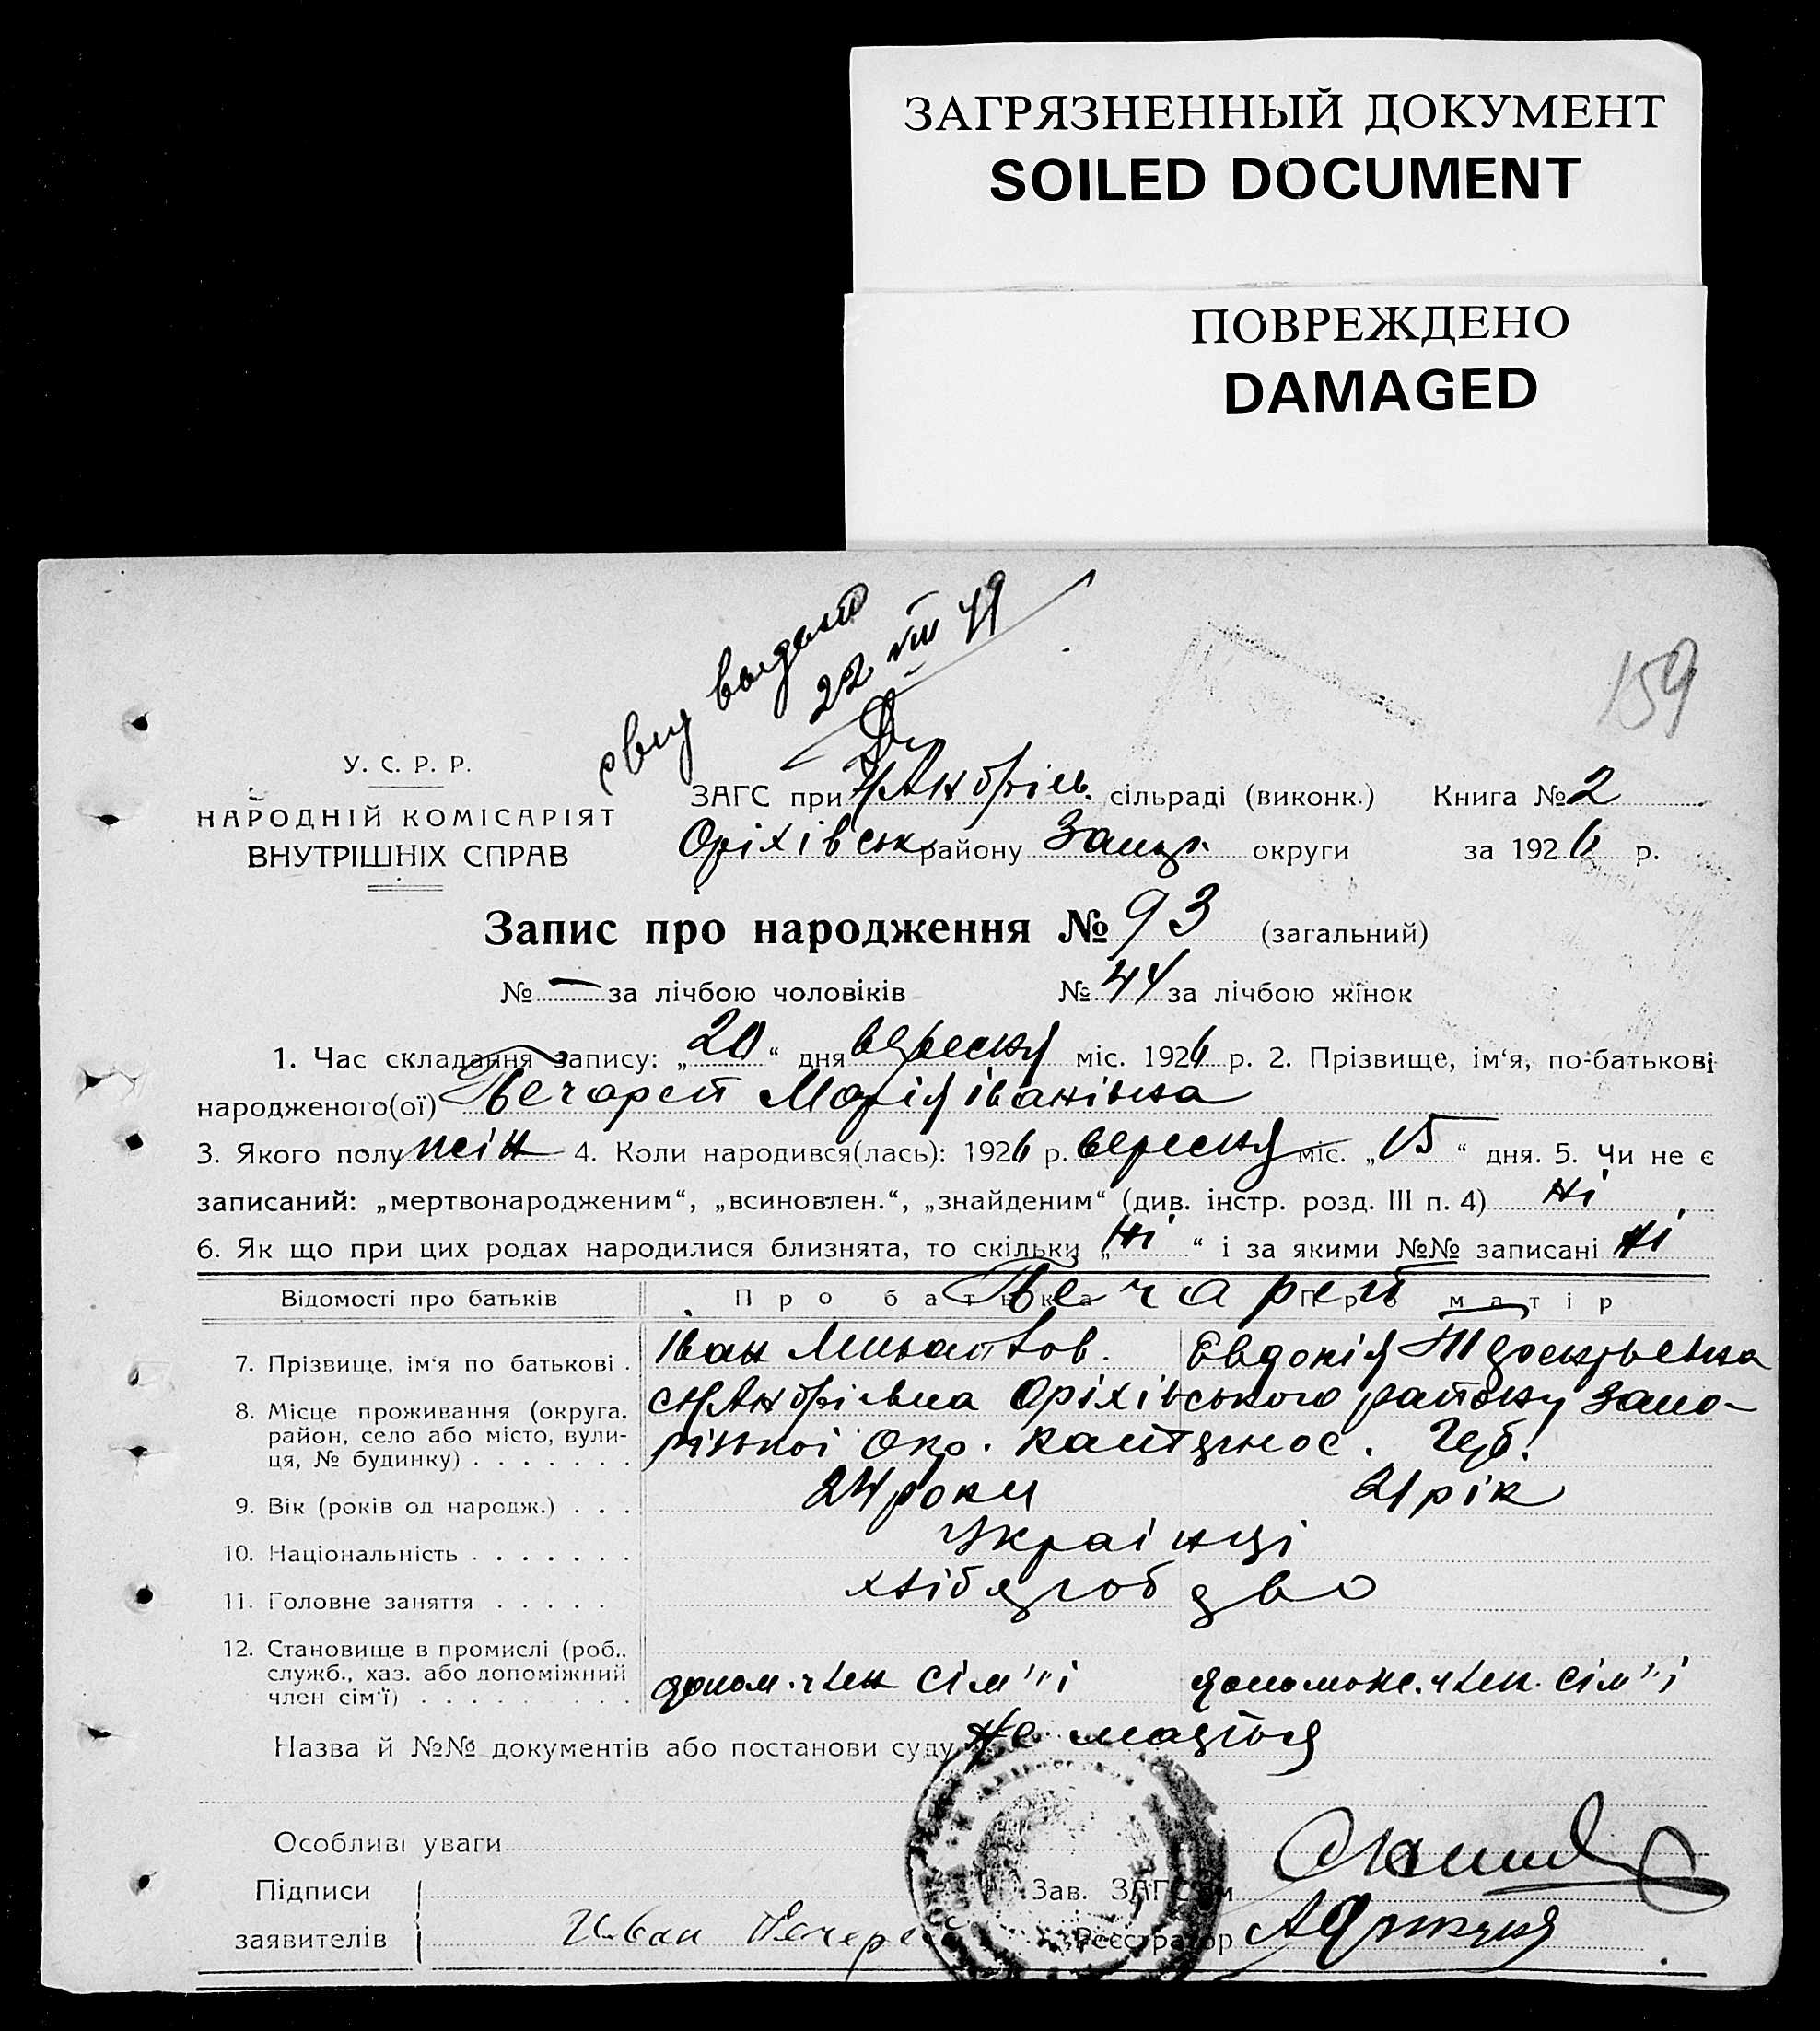 ЗАГРЯЗНЕННЫЙ ДОКУМЕНТ
SOILED DOCUMENT
ПОВРЕЖДЕНО
DAMAGED
159
22 VIII
У. С. Р. Р.
НАРОДНІЙ КОМІСАРІЯТ
ВНУТРІШНІХ СПРАВ
ЗАГС при сільраді (виконк.) Книга № 2
Оріхівськ району округи за 1926 р.
Запис про народження № 93 (загальний)
№ — за лічбою чоловіків № 44 за лічбою жінок
1. Час складання запису: „20“ дня вересня міс. 1926 р. 2. Прізвище, ім‘я, по-батькові
народженого(ої) Печарей Марія Іванівна
3. Якого полу жін 4. Коли народився(лась): 1926 р. вересня міс. „15“ дня. 5. Чи не є
записаний: „мертвонародженим“, „всиновлен.“, „знайденим“ (див. інстр. розд. III п. 4) ні
6. Як що при цих родах народилися близнята, то скільки „ні“ і за якими №№ записані ні
Відомості про батьків Про батька Про матір
Печарей
7. Прізвище, ім‘я по батькові . Іван Евдокія
8. Місце проживання (округа, район, село або місто, вулиця, № будинку) . . . . . . . Оріхівського району Запо-
різької Окр. Губ.
9. Вік (років од народж.) . . . 24 роки 21 рік
10. Національність . . . . . . . Українці
11. Головне заняття . . . . .
12. Становище в промислі (роб., служб., хаз. або допоміжний член сім‘ї) . . . . . . . . . допом. член сім'ї допомож. член. сім'ї
Назва й №№ документів або постанови суду Не мається
Особливі уваги
Підписи Зав. ЗАГС‘ом
заявителів Иван Печерей Реєстратор